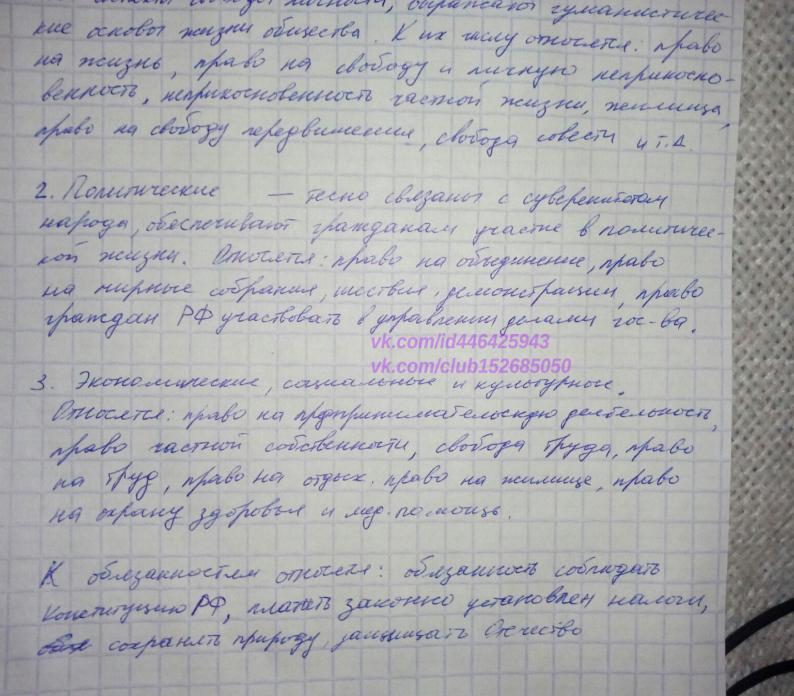 свободы личности, выражают гуманистичес-
кие основы жизни общества. К их числу относятся: право
на жизнь, право на свободу и личную неприкосно-
венность, неприкосновенность частной жизни, жилища,
право на свободу передвижения, свобода совести и т.д.
2. Политические — тесно связаны с суверенитетом
народа, обеспечивают гражданам участие в политичес-
кой жизни. Относятся: право на объединение, право
на мирные собрания, шествия, демонстрации, право
граждан РФ участвовать в управлении делами гос-ва.
vk.com/id446425943
vk.com/club152685050
3. Экономические, социальные и культурные.
Относятся: право на предпринимательскую деятельность,
право частной собственности, свобода труда, право
на труд, право на отдых. право на жилище, право
на охрану здоровья и мед. помощь.
К обязанностям относятся: обязанность соблюдать
Конституцию РФ, платить законно установлен налоги,
сохранять природу, защищать Отечество